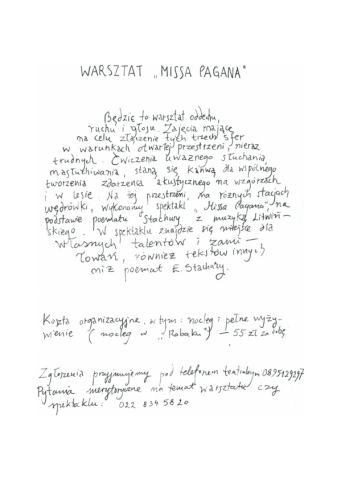 WARSZTAT „MISSA PAGANA"
Będzie to warsztat oddechu,
ruchu i głosu. Zajęcia mające
na celu złączenie tych trzech sfer
w warunkach otwartej przestrzeni, nieraz
trudnych. Ćwiczenia uważnego słuchania,
nasłuchiwania, staną się kanwą dla wspólnego
tworzenia zdarzenia akustycznego na wzgórzach
i w lesie. Na tej przestrzeni, na różnych stacjach
wędrówki, wykonamy spektakl „Missa Pagana" na
podstawie poematu Stachury z muzyką Litwiń-
skiego. W spektaklu znajdzie się miejsce dla
własnych talentów i zami-
łowań, również tekstów innych
niż poemat E. Stachury.
Koszta organizacyjne, w tym: nocleg i pełne wyży-
wienie (nocleg w „Robaku") – 55 zł za dobę
Zgłoszenia przyjmujemy pod telefonem teatralnym 0895129297
Pytania merytoryczne na temat warsztatu czy
spektaklu: 022 834 58 20